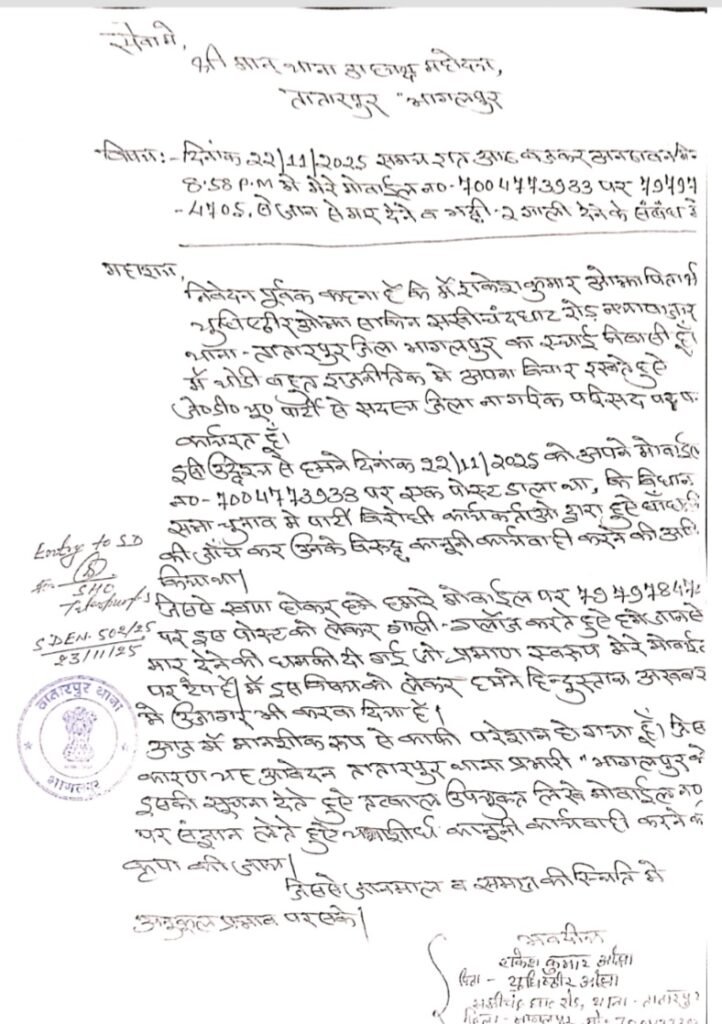 सेवा मे,
श्री मान थाना अध्यक्ष महोदय,
तातारपुर "भागलपुर
विषय:- दिनांक 22/11/2025 समय रात आठ बजकर अनठावन मि०
8:58 P.M मे मेरे मोबाईल no- 7004773933 पर 79797
-4705. से जान से मार देने व भद्दी-२ गाली देने के संबंध मे
महाशय,
निवेदन पूर्वक कहना है कि मैं राकेश कुमार ओझा पिता श्री
युधिष्ठीर ओझा साकिन सखीचंदघाट रोड़ नयाबाजार
थाना- तातारपुर जिला भागलपुर का स्थाई निवासी हूँ।
मैं थोडी बहुत राजनीतिक मे अपना विचार रखते हुऐ
जे०डी०यू० पार्टी से सदस्य जिला नागरिक परिसद पद पर
कार्यरत हूँ।
इसी उद्देश्य से हमने दिनांक 22/11/2025 को अपने मोबाईल
no- 7004773933 पर एक पोस्ट डाला था, कि विधान
सभा चुनाव मे पार्टी विरोधी कार्यकर्ताओ द्वारा हुऐ धाँधली
की जाँच कर उनके विरुद्ध कानूनी कार्यवाही करने की
किया था।
जिससे खफा होकर हमे हमारे मोबाईल पर 79797847
पर इस पोस्ट को लेकर गाली-गलौज करते हुऐ हमे जान से
मार देने की धमकी दी गई जो प्रमाण स्वरूप मेरे मोबाईल
पर टेप है। मैं इस विषय को लेकर हमने हिन्दुस्तान अखबार
मे उजागर भी करवा दिया है।
आज मैं मानशीक रूप से काफी परेशान हो गया हूँ। जिस
कारण यह आवेदन तातारपुर थाना प्रभारी "भागलपुर को
इसकी सूचना देते हुऐ तत्काल उपयुक्त लिखे मोबाईल no
पर संज्ञान लेते हुऐ यथाशीघ्र कानूनी कार्यवाही करने की
कृपा की जाय।
जिससे जानमाल व समाज की स्थिति मे
अनुकूल प्रभाव पर सके।
Entry to SD
SHO
Tatarpur P.S
SDEN- 502/25
23/11/25
तातारपुर थाना
भागलपुर
भवदीय
राकेश कुमार ओझा
पिता - युधिष्ठीर ओझा
सखीचंद घाट रोड, थाना - तातारपुर
जिला - भागलपुर